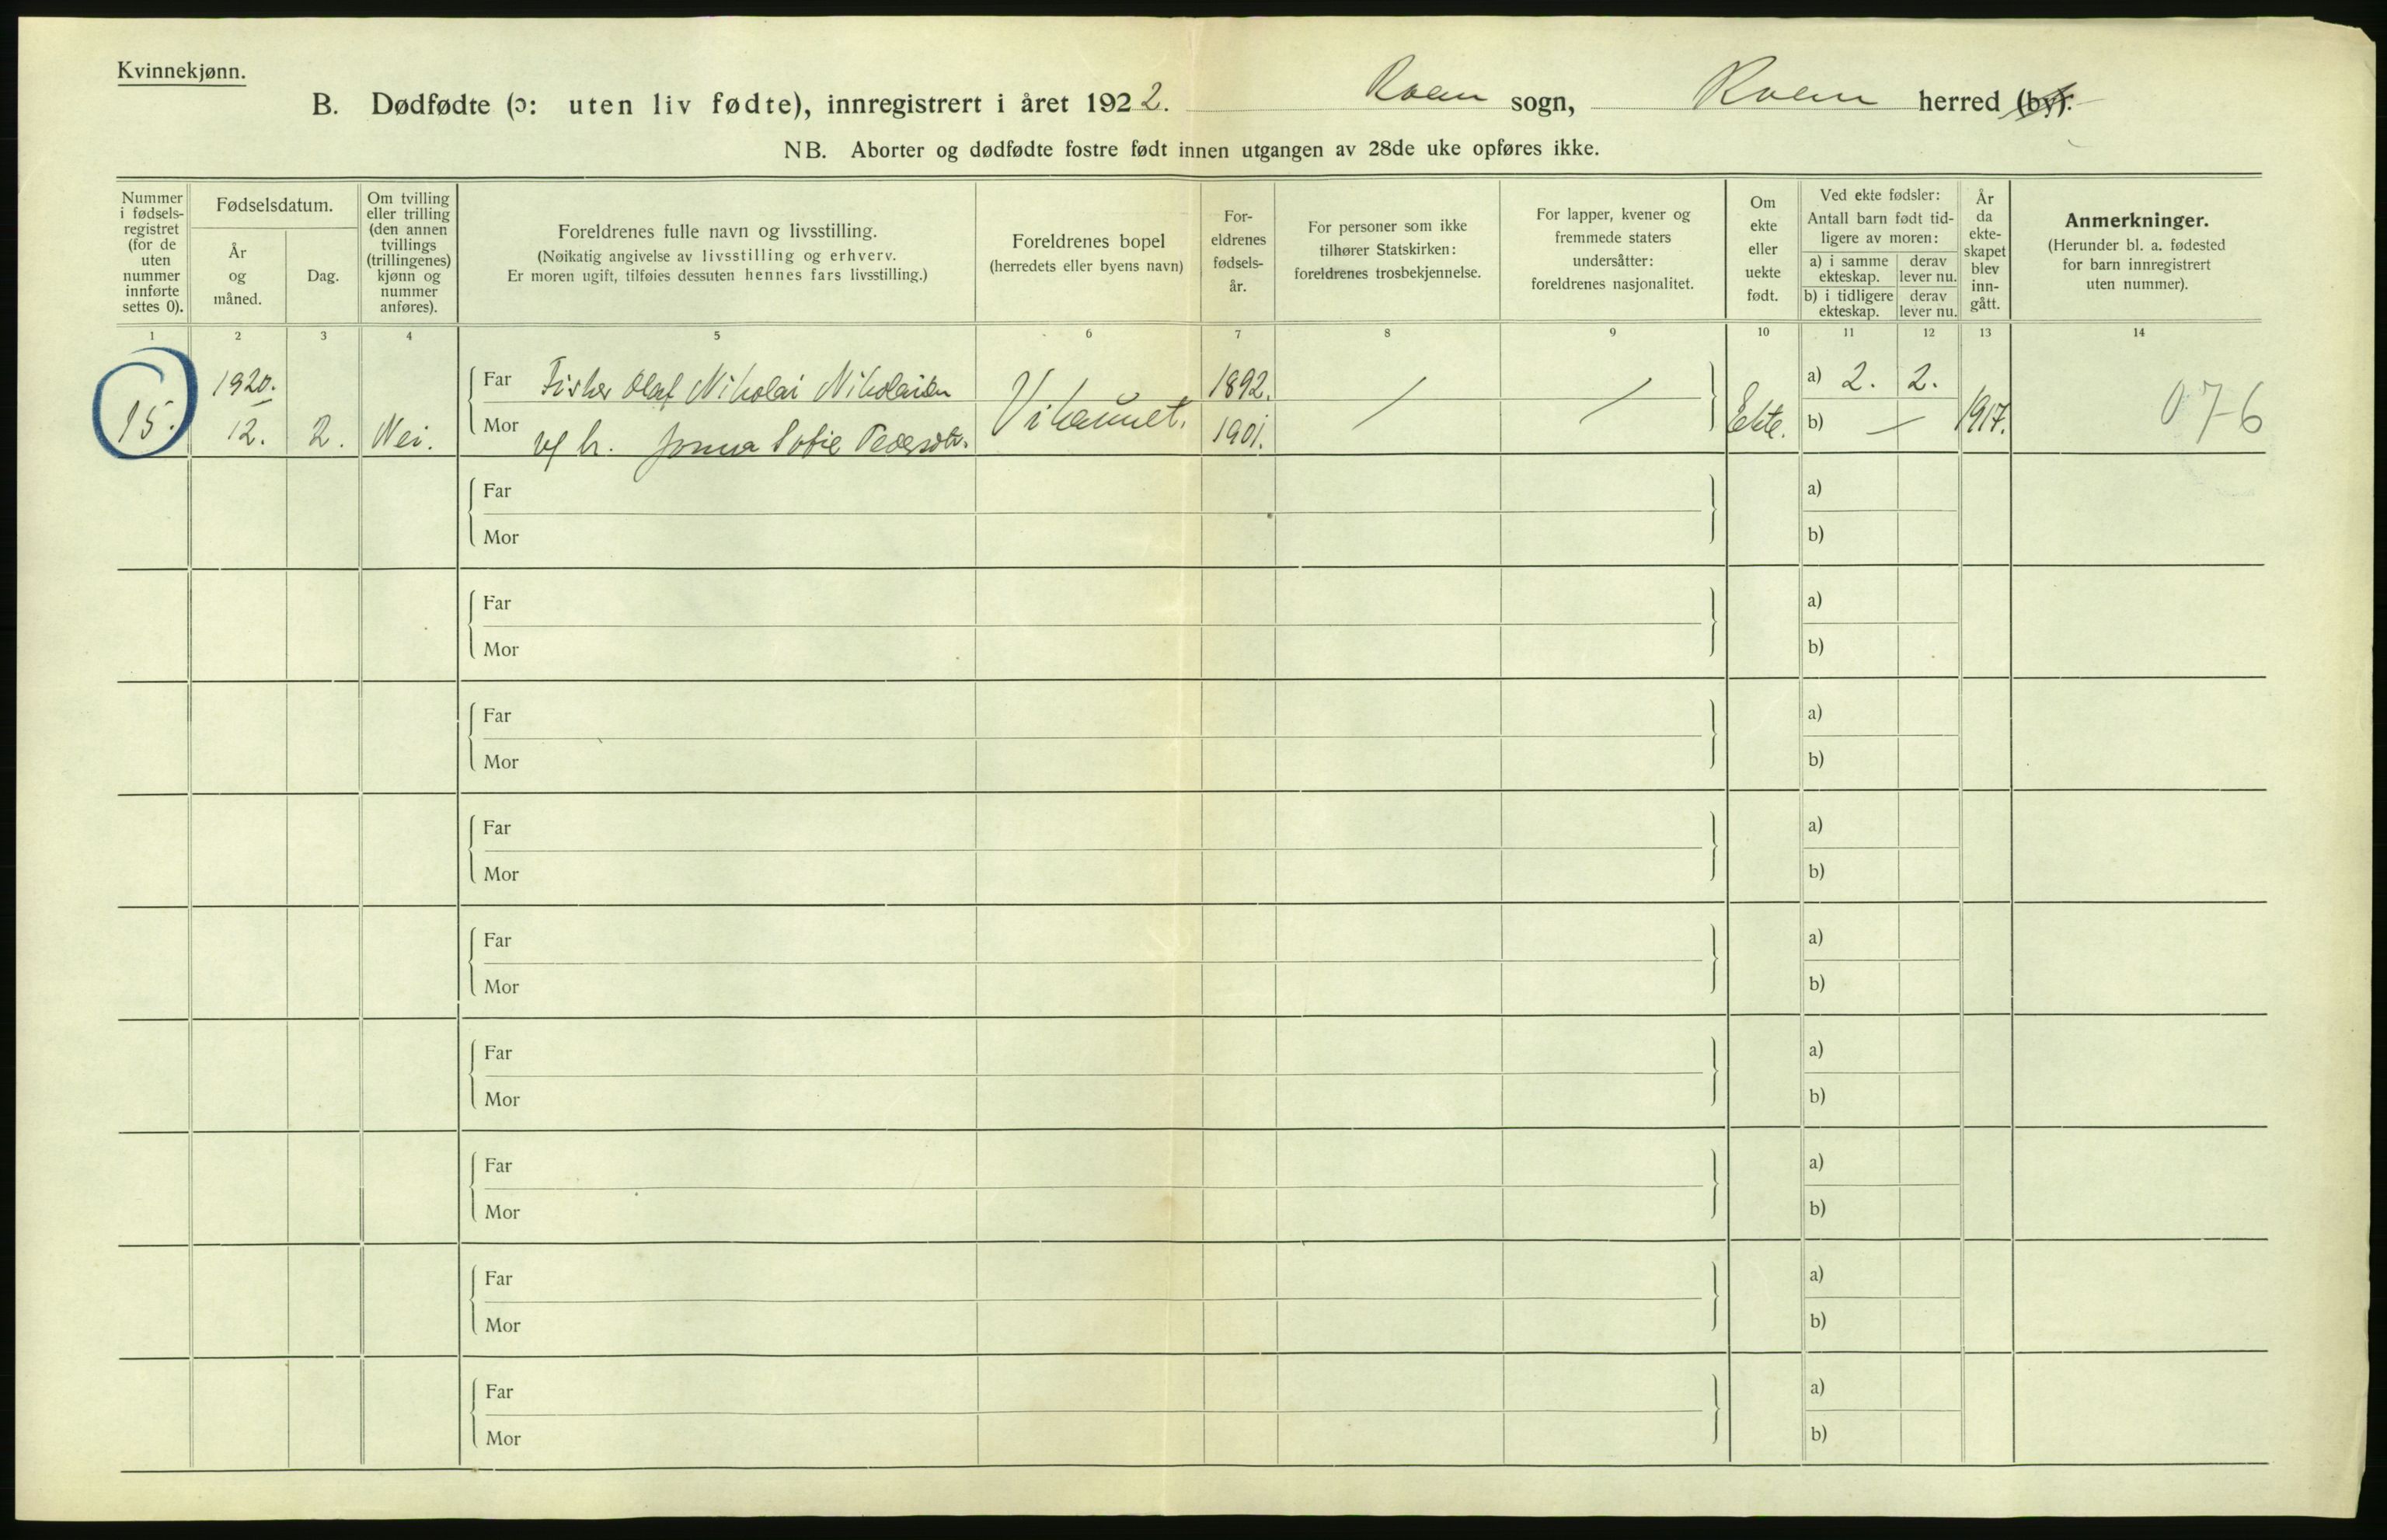 Kvinnekjønn.
B. Dødfødte (ɔ: uten liv fødte), innregistrert i året 1922. Roan sogn, Roan herred (by).
NB. Aborter og dødfødte fostre født innen utgangen av 28de uke opføres ikke.
Nummer i fødsels-registret (for de uten nummer innførte settes 0).
Fødselsdatum.
År og måned.
Dag.
Om tvilling eller trilling (den annen tvillings (trillingenes) kjønn og nummer anføres).
Foreldrenes fulle navn og livsstilling.
(Nøikatig angivelse av livsstilling og erhverv.
Er moren ugift, tilføies dessuten hennes fars livsstilling.)
Foreldrenes bopel
(herredets eller byens navn)
For-eldrenes fødsels-år.
For personer som ikke tilhører Statskirken: foreldrenes trosbekjennelse.
For lapper, kvener og fremmede staters undersåtter: foreldrenes nasjonalitet.
Om ekte eller uekte født.
Ved ekte fødsler:
Antall barn født tid-ligere av moren:
a) i samme ekteskap.
derav lever nu.
b) i tidligere ekteskap.
derav lever nu.
År da ekte-skapet blev inn-gått.
Anmerkninger.
(Herunder bl. a. fødested for barn innregistrert uten nummer).
1 2 3 4 5 6 7 8 9 10 11 12 13 14
15. 1920. 12. 2. Nei.
Far Fisker Olaf Nikolai Nikolaisen 1892. a) 2. 2.
Mor og h. Sofie Pedersdtr. 1901. Ekte. b) — 1917. 076
Far a)
Mor b)
Far a)
Mor b)
Far a)
Mor b)
Far a)
Mor b)
Far a)
Mor b)
Far a)
Mor b)
Far a)
Mor b)
Far a)
Mor b)
Far a)
Mor b)